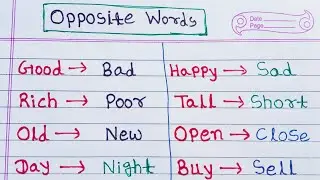 Opposite Words
Date
Page
Good → Bad
Rich → Poor
Old → New
Day → Night
Happy → Sad
Tall → Short
Open → Close
Buy → Sell